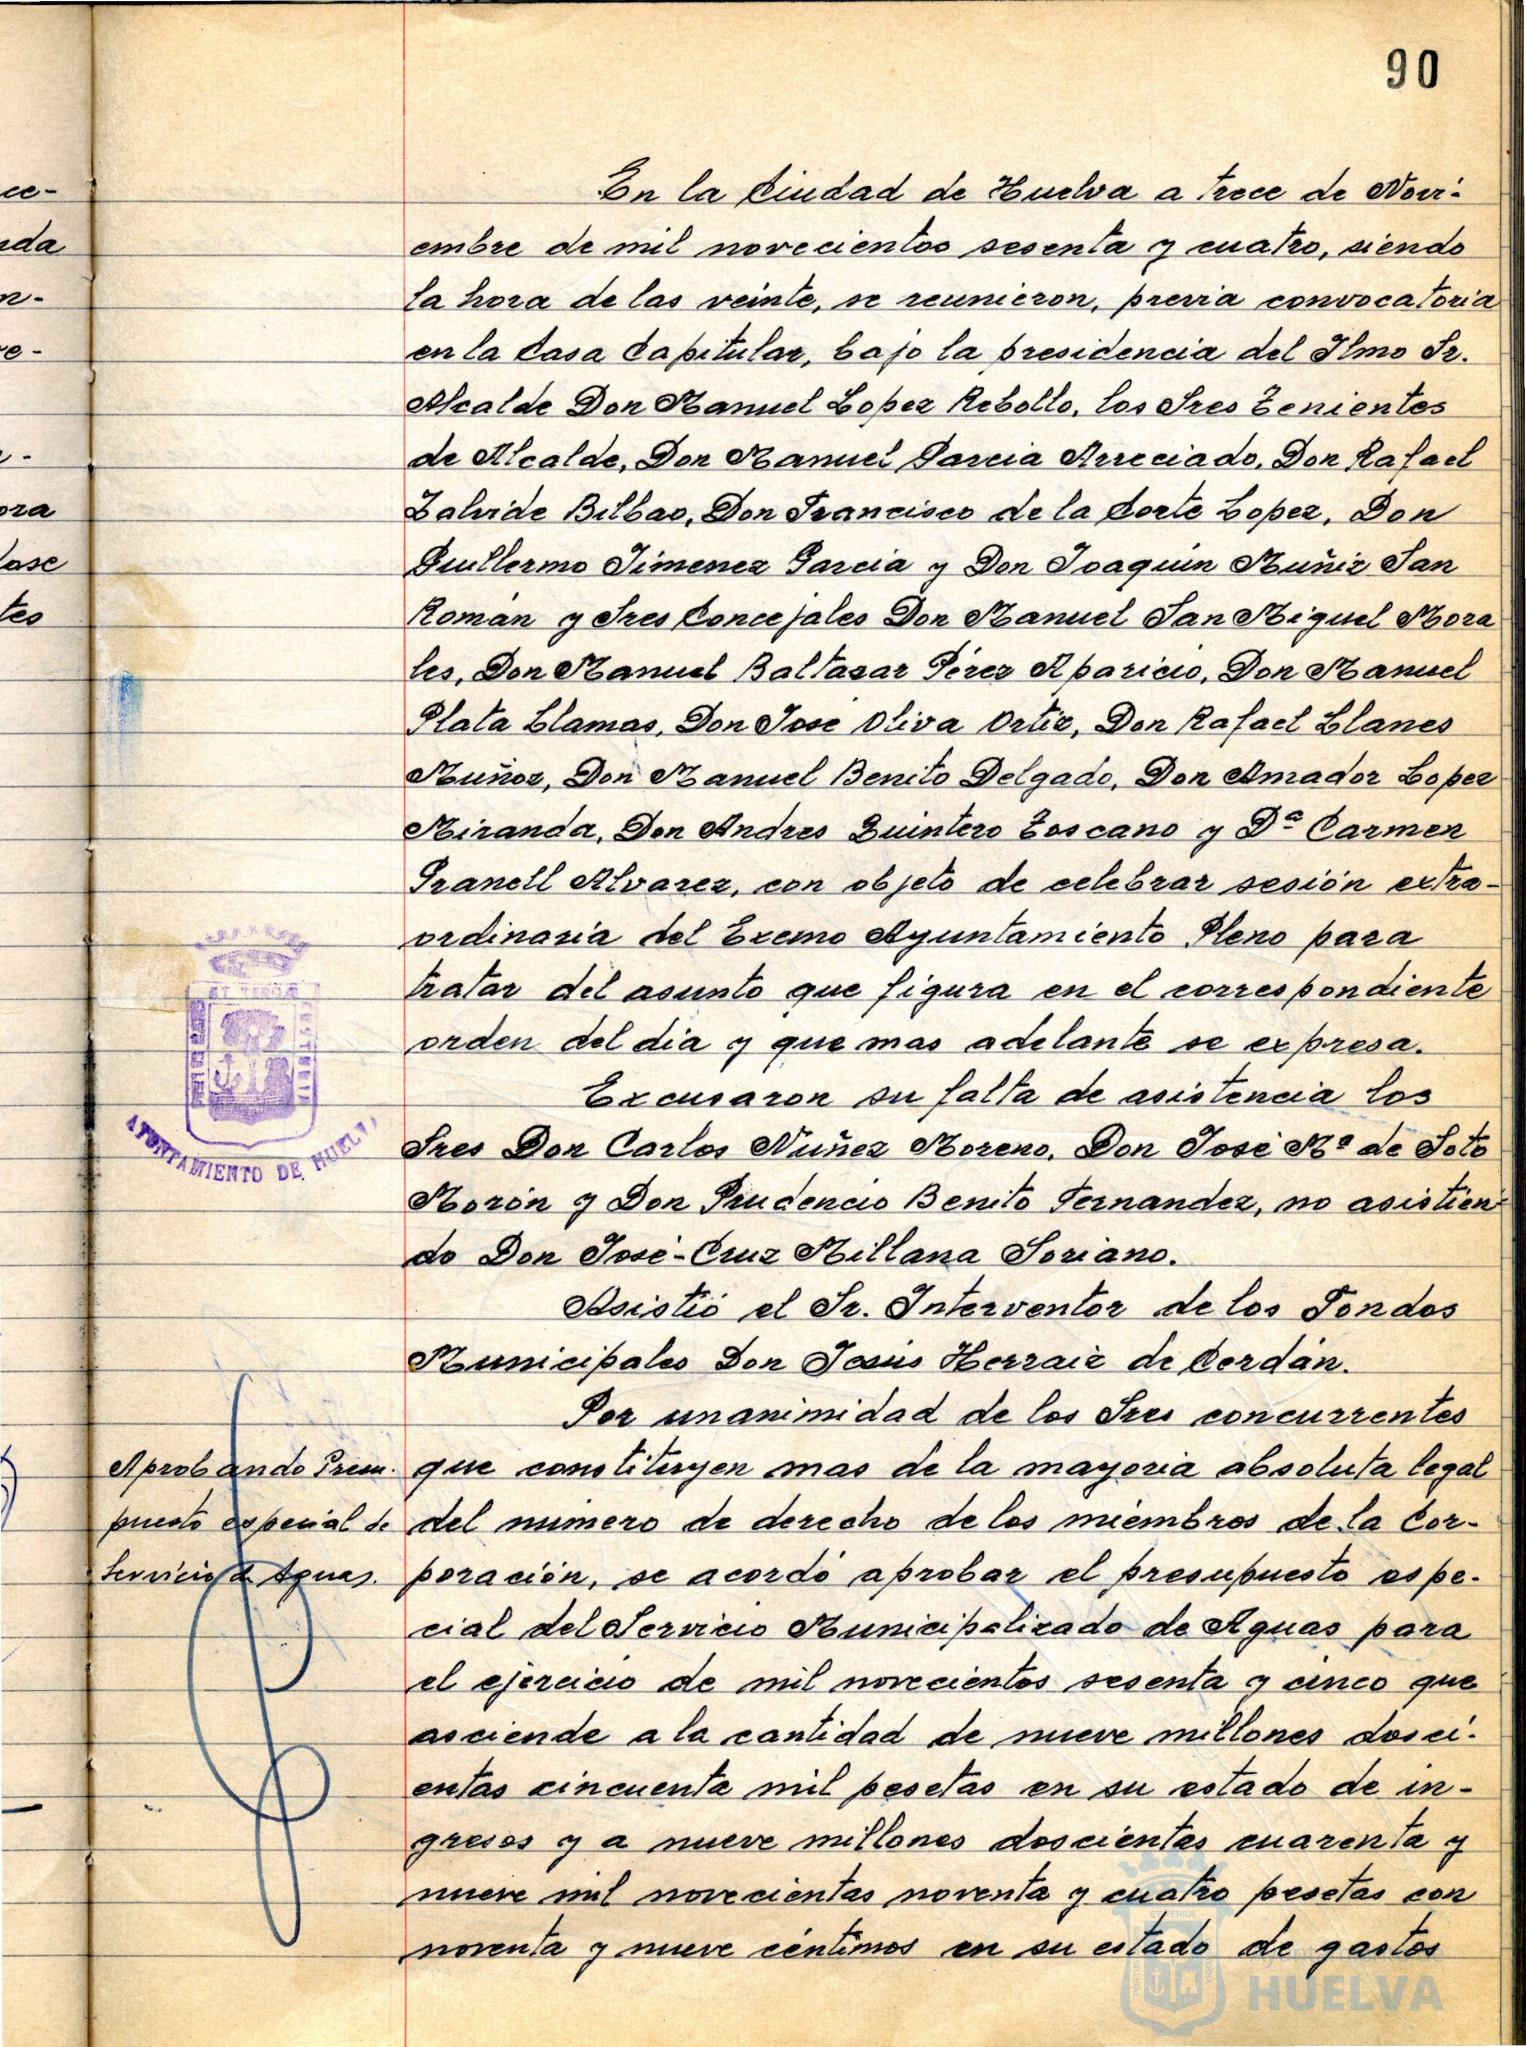 90
ce-
nda
n-
re-
ora
lase
tes
En la Ciudad de Huelva a trece de Novi-
embre de mil novecientos sesenta y cuatro, siendo
la hora de las veinte, se reunieron, previa convocatoria
en la Casa Capitular, bajo la presidencia del Ilmo Sr.
Alcalde Don Manuel Lopez Rebollo, los Sres Tenientes
de Alcalde, Don Manuel Garcia Arreciado, Don Rafael
Zalvide Bilbao, Don Francisco de la Corte Lopez, Don
Guillermo Jimenez Garcia y Don Joaquin Muñiz San
Román y Sres Concejales Don Manuel San Miguel Mora
les, Don Manuel Baltasar Pérez Aparicio, Don Manuel
Plata Llamas, Don Jose Oliva Ortiz, Don Rafael Llanes
Muñoz, Don Manuel Benito Delgado, Don Amador Lopez
Miranda, Don Andres Quintero Toscano y Dª Carmen
Granell Alvarez, con objeto de celebrar sesión extra-
ordinaria del Excmo Ayuntamiento Pleno para
tratar del asunto que figura en el correspondiente
orden del dia y que mas adelante se expresa.
Excusaron su falta de asistencia los
Sres Don Carlos Nuñez Moreno, Don José Mª de Soto
Morón y Don Prudencio Benito Fernandez, no asistien-
do Don José-Cruz Millana Soriano.
Asistió el Sr. Interventor de los Fondos
Municipales Don Jesús Herraiz de Cerdán.
Por unanimidad de los Sres concurrentes
que constituyen mas de la mayoria absoluta legal
del número de derecho de los miembros de la Cor-
poración, se acordó aprobar el presupuesto espe-
cial del Servicio Municipalizado de Aguas para
el ejercicio de mil novecientos sesenta y cinco que
asciende a la cantidad de nueve millones dosci-
entas cincuenta mil pesetas en su estado de in-
gresos y a nueve millones doscientas cuarenta y
nueve mil novecientas noventa y cuatro pesetas con
noventa y nueve céntimos en su estado de gastos
Aprobando Presu-
puesto especial de
Servicio de Aguas.
AYUNTAMIENTO DE HUELVA
HUELVA